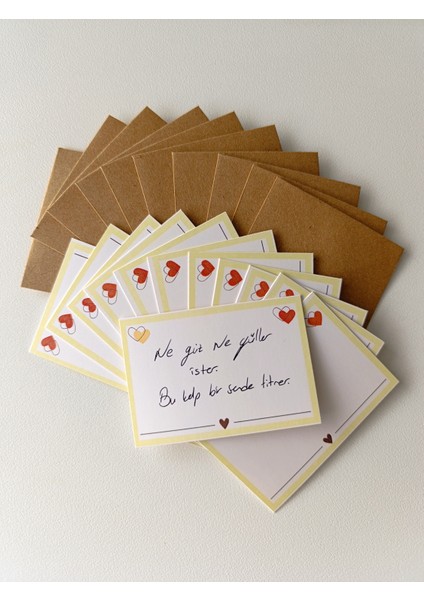 Ne güz Ne güller
ister.
Bu kalp bir sende titrer.